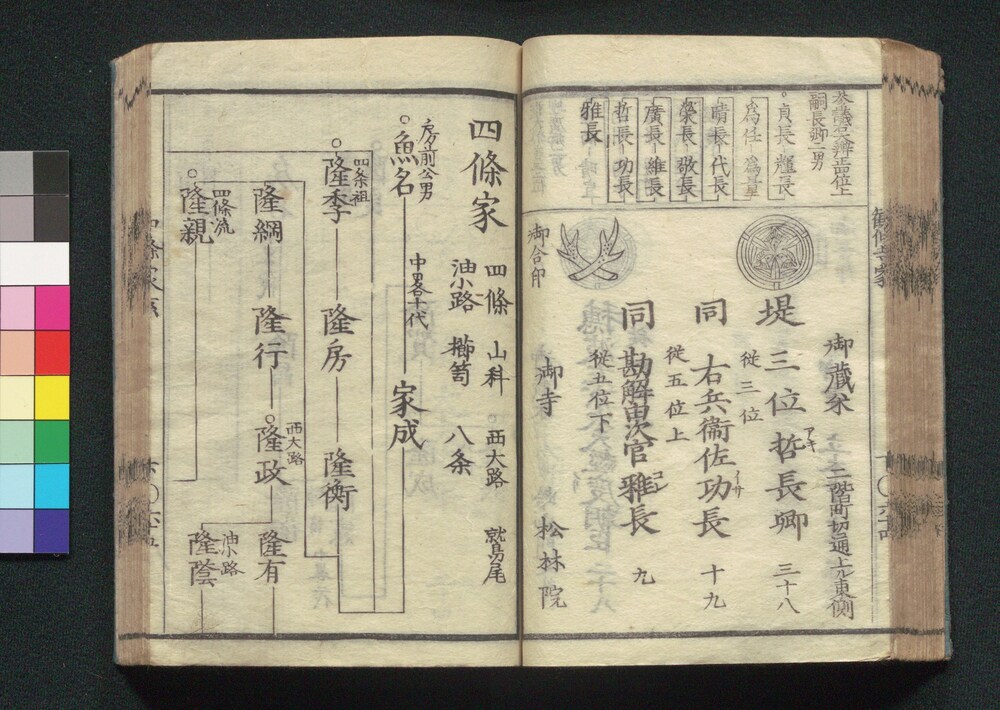 勧修寺家
参議左大辨正位上
嗣長卿二男
貞長 輝長
為任 為量
晴長 代長
榮長 敬長
廣長 維長
哲長 功長
雅長
御藏米 二階町切通上ル東側
堤 三位 哲長卿 三十八
アキ
従三位
同 右兵衞佐 功長 十九
従五位上
同 勘解由次官 雅長 九
従五位下
御合印
御寺 松林院
四條家
四條 山科 西大路 鷲尾
油小路 櫛笥 八条
房前公男
魚名
中畧十代
家成
四条祖
隆季 隆房 隆衡
隆綱 隆行 隆政 隆有
西大路
四條流
隆親
油小路
隆蔭
四條家系